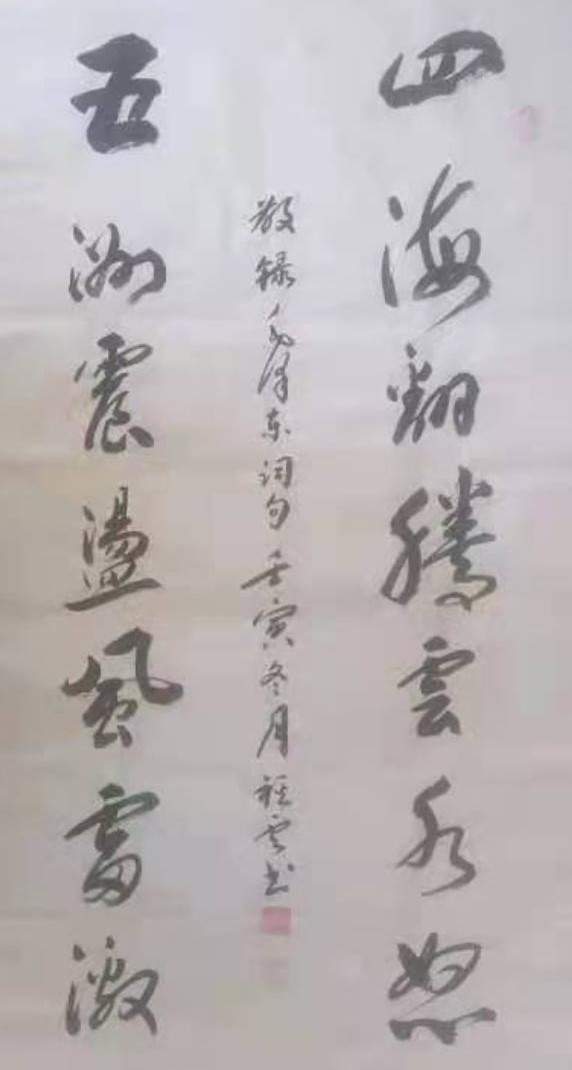 四海翻腾雲水怒
敬録毛泽东词句壬寅冬月程云书
五洲震盪風雷激